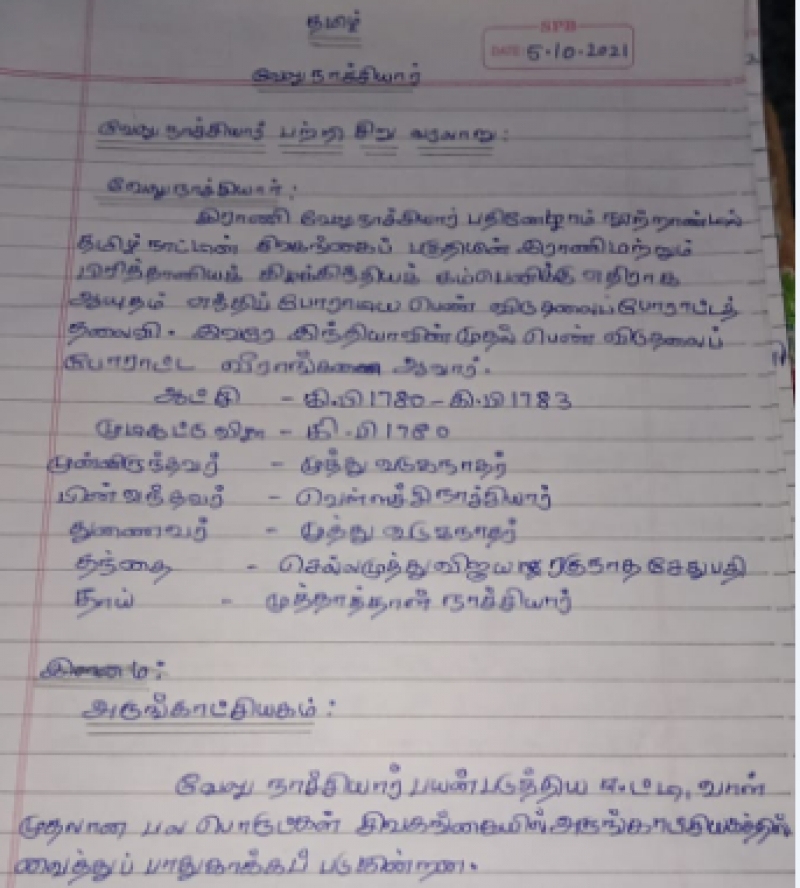 தமிழ்
SPB
DATE: 5-10-2021
வேலு நாச்சியார்
வேலு நாச்சியார் பற்றி சிறு வரலாறு :
வேலுநாச்சியார் :
இராணி வேலுநாச்சியார் பதினேழாம் நூற்றாண்டில்
தமிழ் நாட்டின் சிவகங்கைப் பகுதியின் இராணி மற்றும்
பிரித்தானியக் கிழக்கிந்தியக் கம்பெனிக்கு எதிராக
ஆயுதம் ஏந்திப் போராடிய பெண் விடுதலைப் போராட்டத்
தலைவி. இவரே இந்தியாவின் முதல் பெண் விடுதலைப்
போராட்ட வீராங்கணை ஆவார்.
ஆட்சி - கி.பி 1780 - கி.பி 1783
முடிசூட்டு விழா - கி.பி 1780
முன்னிருந்தவர் - முத்து வடுகநாதர்
பின் வந்தவர் - வெள்ளச்சி நாச்சியார்
துணைவர் - முத்து வடுகநாதர்
தந்தை - செல்லமுத்து விஜய ரகுநாத சேதுபதி
தாய் - முத்தாத்தாள் நாச்சியார்
அருங்காட்சியகம் :
வேலு நாச்சியார் பயன்படுத்திய ஈட்டி, வாள்
முதலான பல பொருட்கள் சிவகங்கையில் அருங்காட்சியகத்தில்
வைத்துப் பாதுகாக்கப் படுகின்றன.